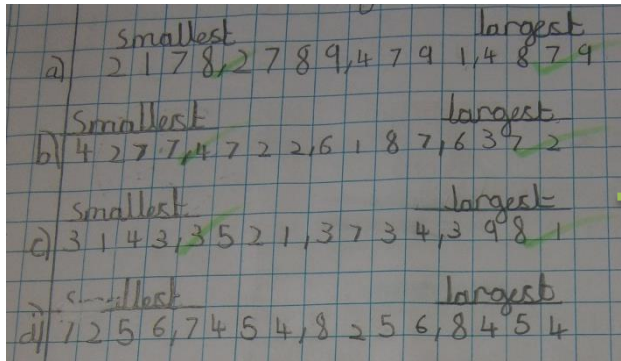 smallest largest
a) 2 1 7 8, 2 7 8 9, 4 7 9 1, 4 8 7 9
Smallest largest
b) 4 2 7 7, 4 7 2 2, 6 1 8 7, 6 3 7 2
smallest largest
c) 3 1 4 3, 3 5 2 1, 3 7 3 4, 3 9 8 1
smallest largest
d) 7 2 5 6, 7 4 5 4, 8 2 5 6, 8 4 5 4